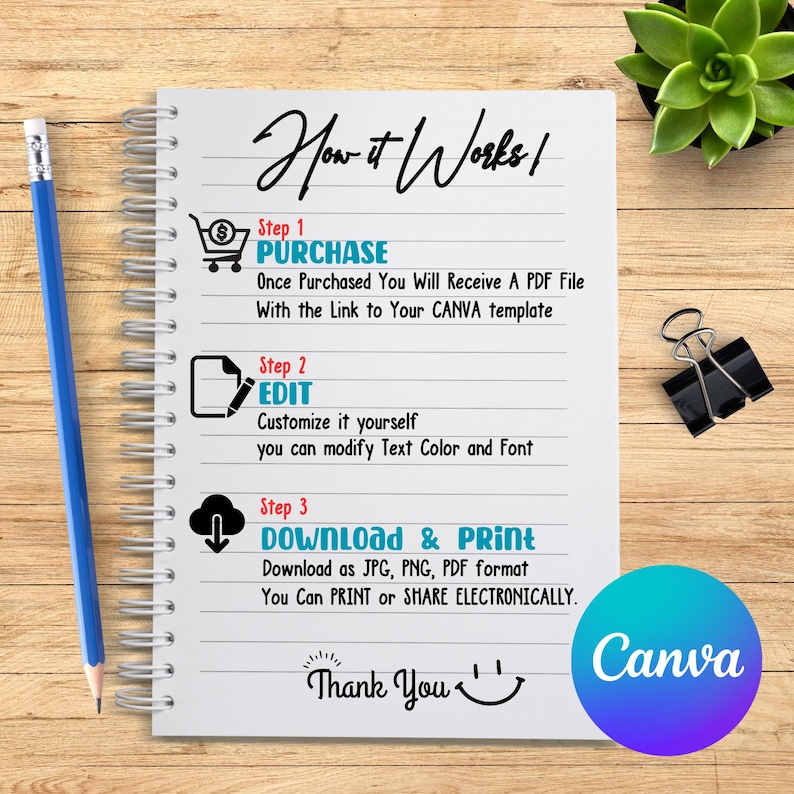 How it Works!
Step 1
PURCHASE
Once Purchased You Will Receive A PDF File
With the Link to Your CANVA template
Step 2
EDIT
Customize it yourself
you can modify Text Color and Font
Step 3
DOWNLOAD & PRINT
Download as JPG, PNG, PDF format
You Can PRINT or SHARE ELECTRONICALLY.
Thank You
Canva